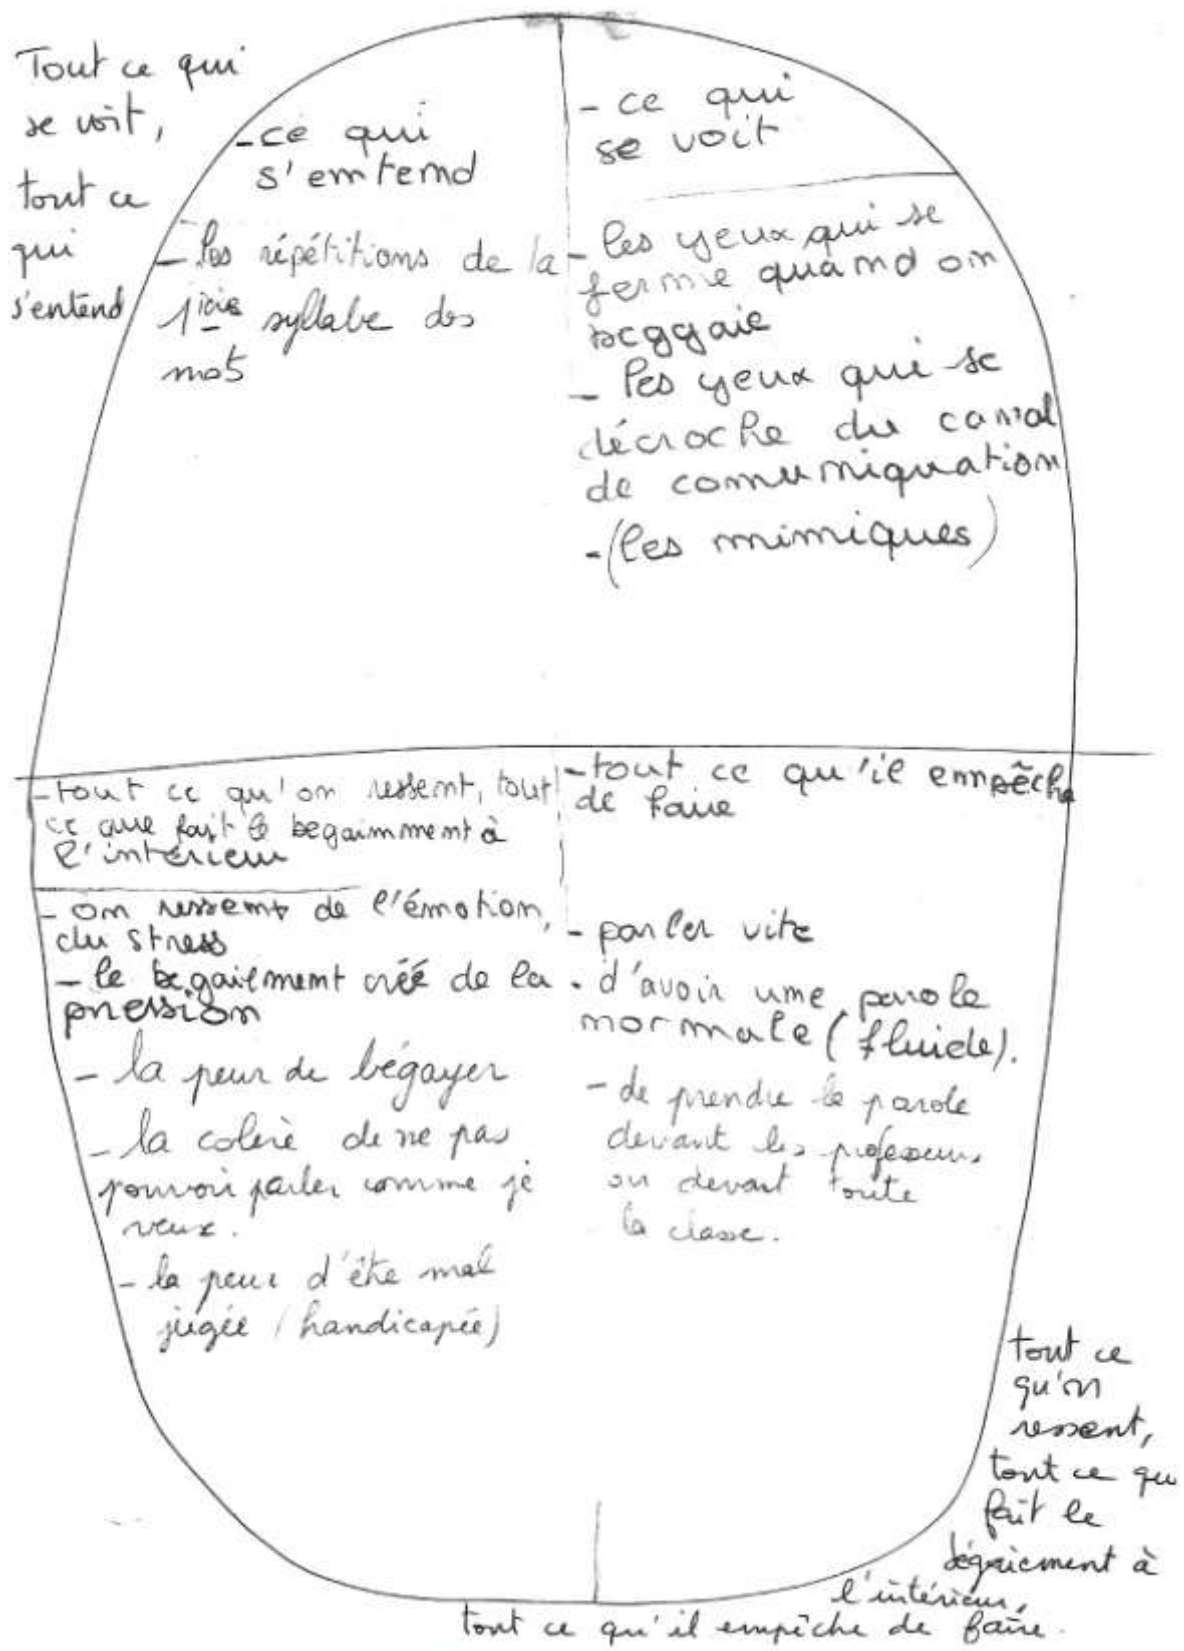 Tout ce qui
se voit,
tout ce
qui
s'entend
- ce qui
s'emtemd
- les répétitions de la
1ière syllabe des
mots
- ce qui
se voit
- les yeux qui se
ferme quamd on
beggaie
- les yeux qui se
décroche du camal
de comumiquation
- (les mimiques)
- tout ce qu'on ressent, tout
ce que fait le begaimment à
l'intérieur
- om ressemt de l'émotion,
du stress
- le begaiement créé de la
pression
- la peur de bégayer
- la colère de ne pas
pouvoir parler comme je
veux.
- la peur d'être mal
jugée (handicapée)
- tout ce qu'il empêche
de faire
- parler vite
- d'avoir ume parole
mormale (fluide).
- de prendre la parole
devant les professeurs
ou devant toute
la classe.
tout ce
qu'on
ressent,
tout ce que
fait le
bégaiement à
l'intérieur,
tout ce qu'il empêche de faire.